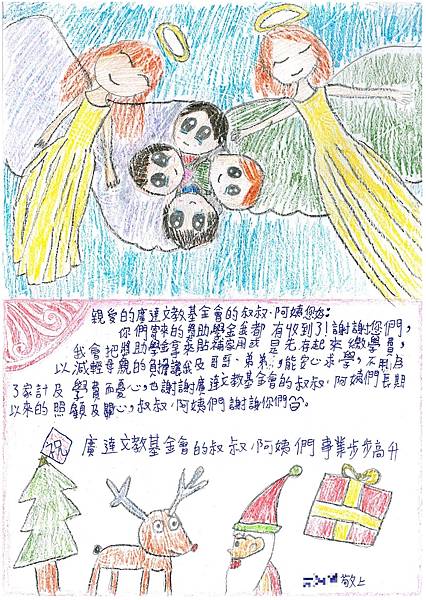 親愛的廣達文教基金會的叔叔、阿姨您好：
你們寄來的獎助學金我都有收到了！謝謝您們，
我會把獎助學金拿來貼補家用或是先存起來繳學費，
以減輕母親的負擔讓我及哥哥、弟弟…，能安心求學，不用為
了家計及學費而憂心，也謝謝廣達文教基金會的叔叔、阿姨們長期
以來的照顧及關心，叔叔、阿姨們謝謝你們
祝
廣達文教基金會的叔叔、阿姨們事業步步高升
敬上